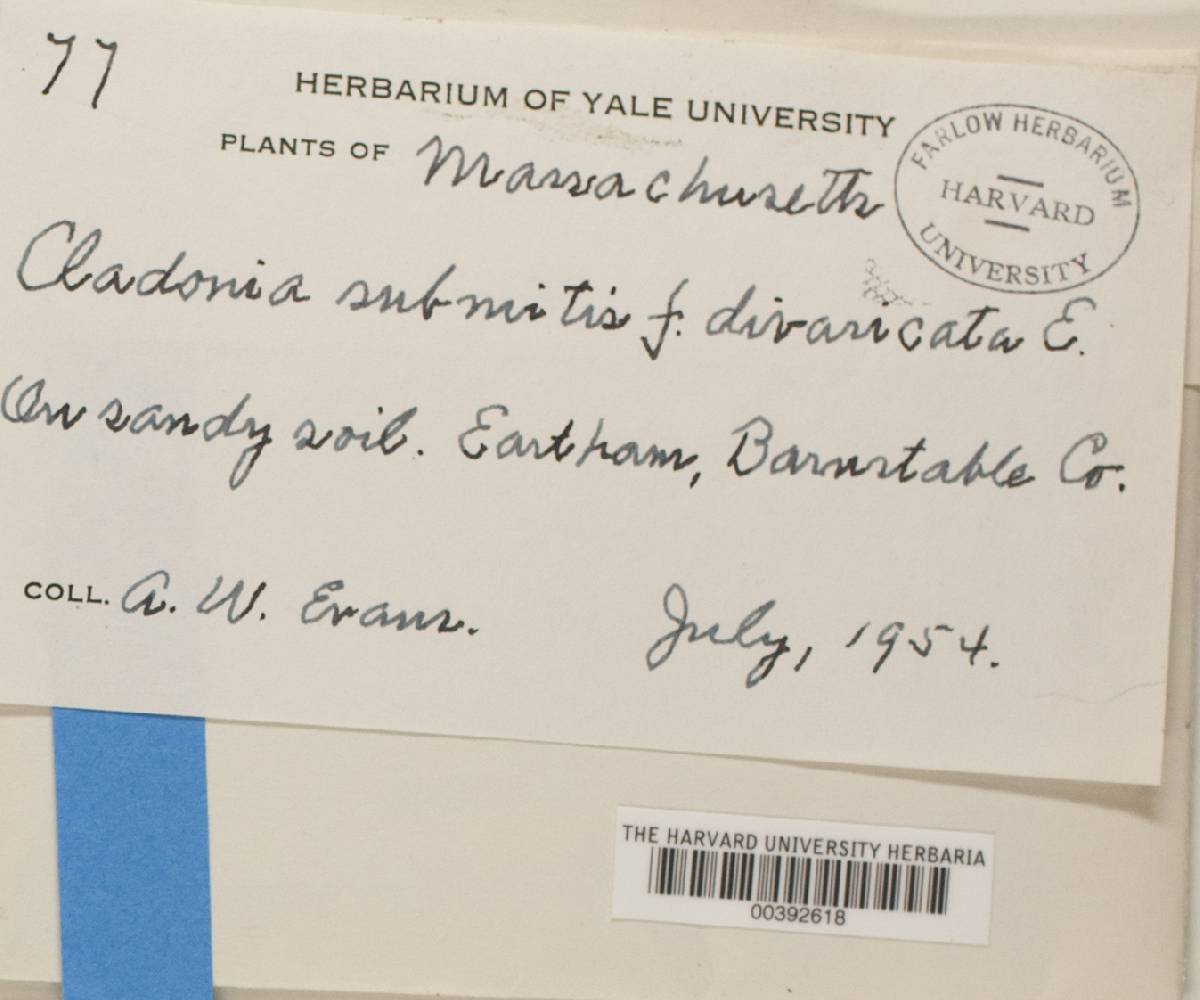 77
HERBARIUM OF YALE UNIVERSITY
PLANTS OF Massachusetts
FARLOW HERBARIUM
HARVARD
UNIVERSITY
Cladonia submitis f. divaricata E.
On sandy soil. Eastham, Barnstable Co.
COLL. A. W. Evans. July, 1954.
THE HARVARD UNIVERSITY HERBARIA
00392618